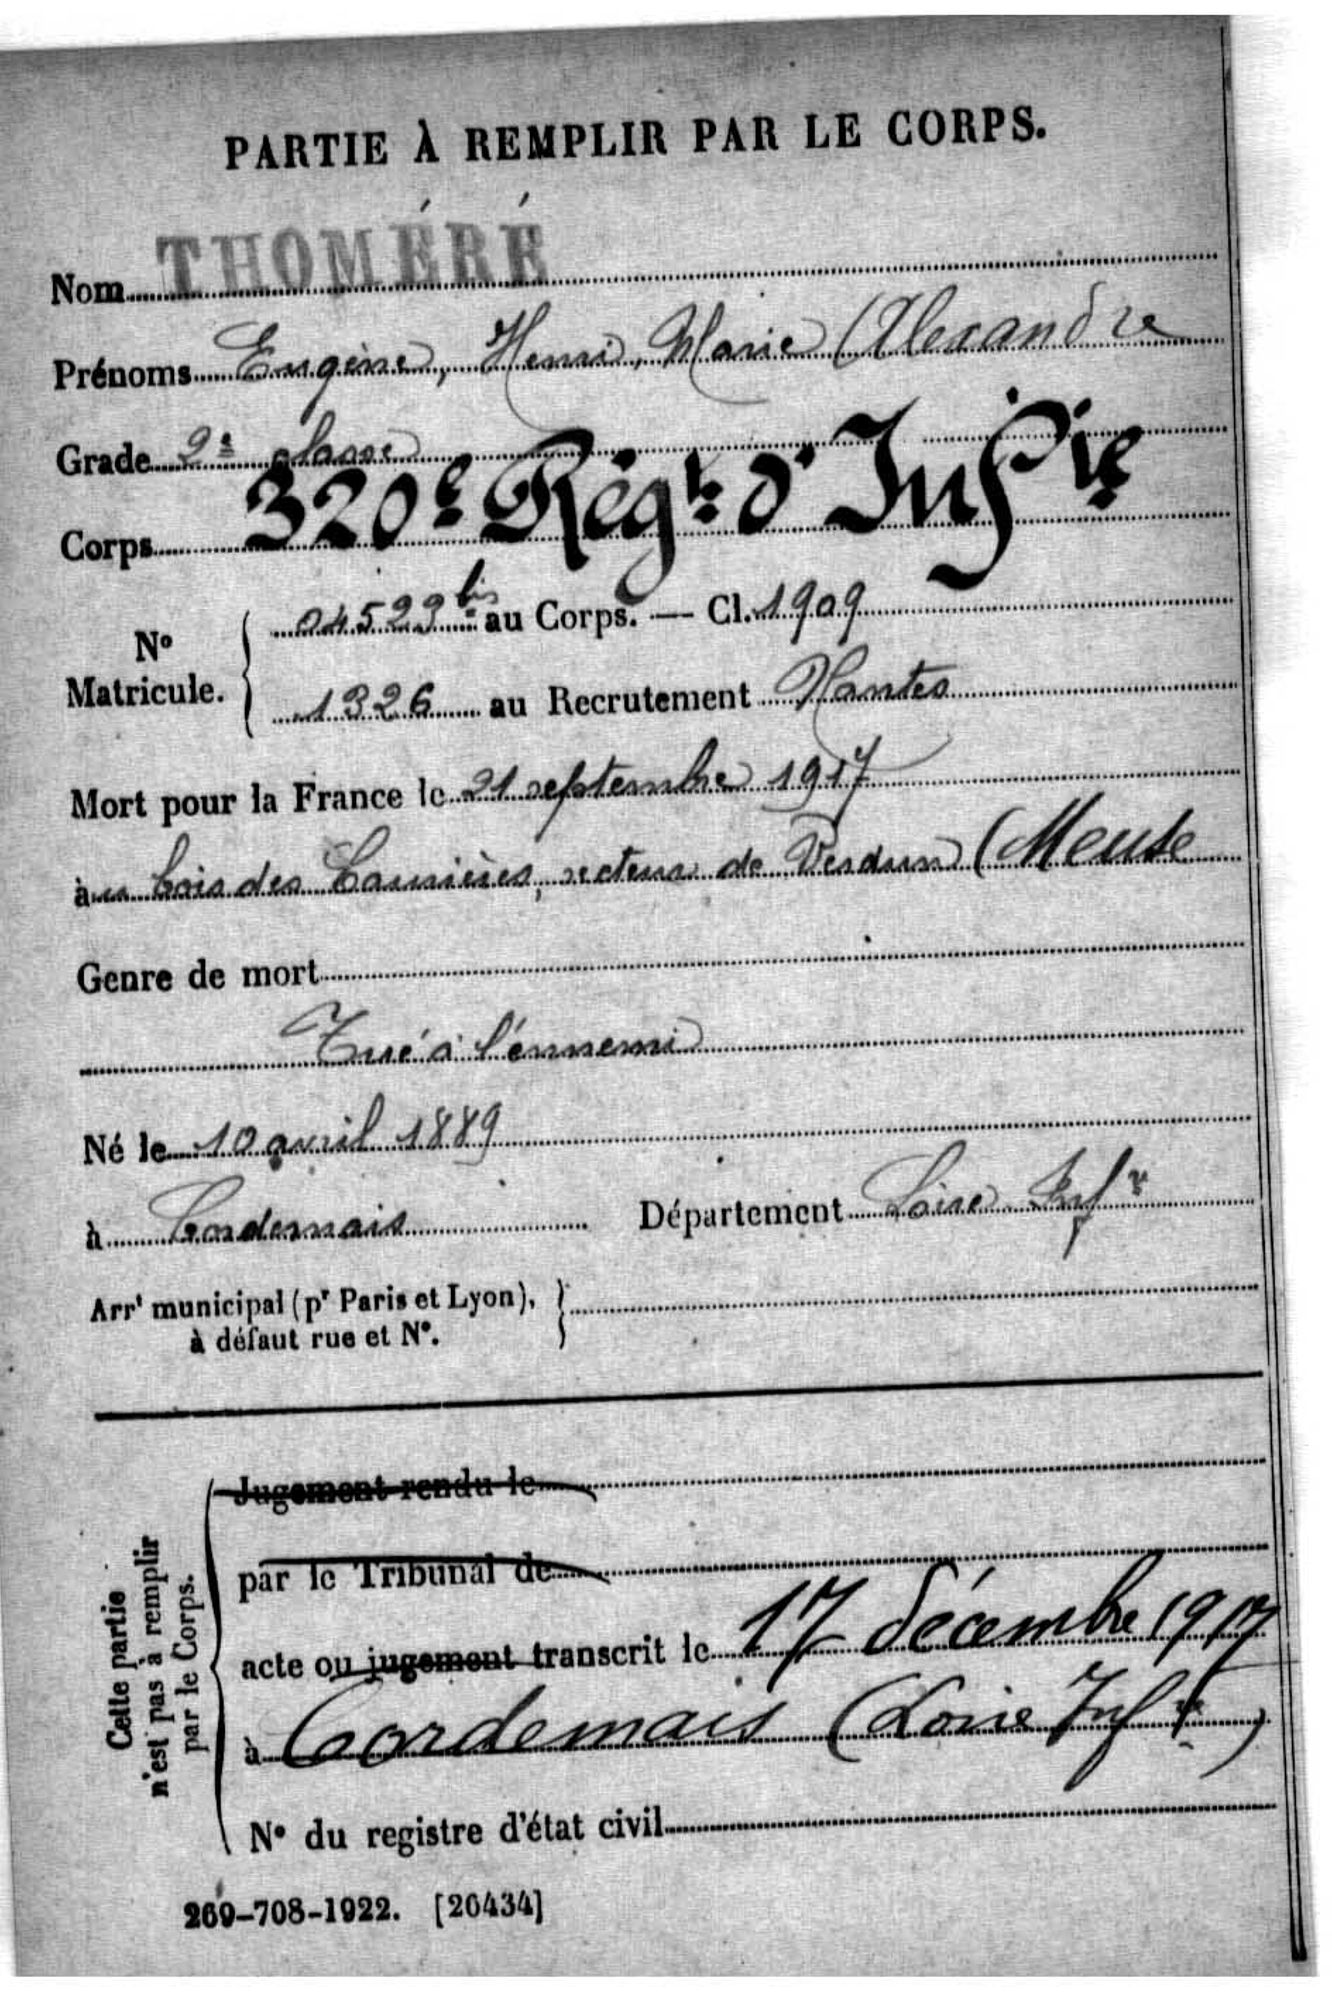 PARTIE À REMPLIR PAR LE CORPS.
Nom THOMÉRÉ
Prénoms Eugène, Henri, Marie Alexandre
Grade 2e classe
Corps 320e Régt d'Infie
04523 bis au Corps. — Cl. 1909
N° Matricule.
1326 au Recrutement Nantes
Mort pour la France le 21 septembre 1917
à au bois des Caurières, secteur de Verdun (Meuse
Genre de mort
Tué à l'ennemi
Né le 10 avril 1889
à Cordemais Département Loire Infre
Arrt municipal (pr Paris et Lyon),
à défaut rue et N°.
Jugement rendu le
par le Tribunal de
acte ou jugement transcrit le 17 décembre 1917
à Cordemais (Loire Infre)
N° du registre d'état civil
Cette partie
n'est pas à remplir
par le Corps.
269-708-1922. [26434]